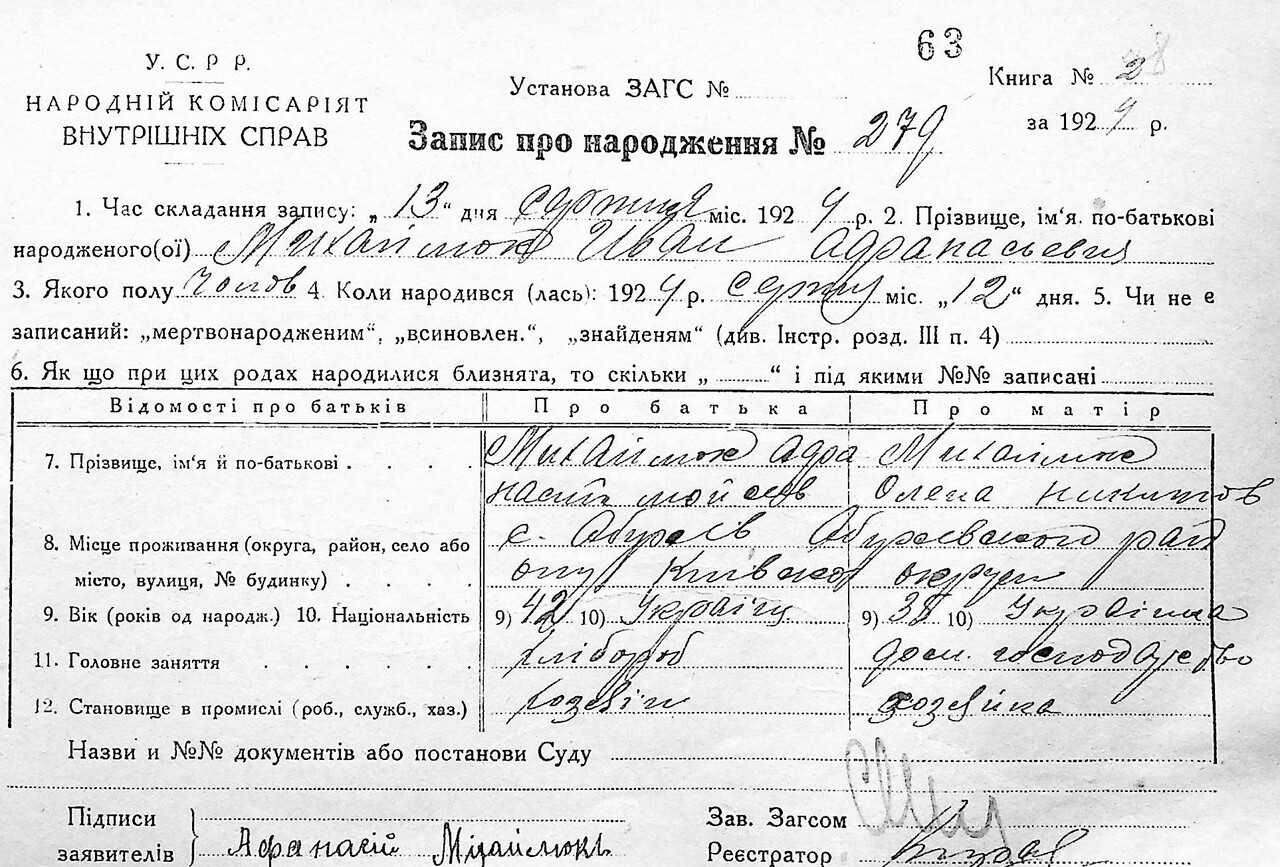 63
У. С. Р Р.
НАРОДНІЙ КОМІСАРІЯТ
ВНУТРІШНІХ СПРАВ
Установа ЗАГС №
Книга № 28
за 1924 р.
Запис про народження № 279
1. Час складання запису: „ 13 “ дня серпня міс. 1924 р. 2. Прізвище, ім‘я, по-батькові
народженого(ої) Михайлюк Иван Афанасьевич
3. Якого полу чолов 4. Коли народився (лась): 1924 р. серпня міс. „12“ дня. 5. Чи не є
записаний: „мертвонародженим“, „всиновлен.“, „знайденям“ (див. Інстр. розд. III п. 4)
6. Як що при цих родах народилися близнята, то скільки „ “ і під якими №№ записані
Відомості про батьків Про батька Про матір
7. Прізвище, ім‘я й по-батькові Михайлюк Афа Михайлюк
насий мойсеев Олена никитов
8. Місце проживання (округа, район, село або с. Обухів Обухівського рай
місто, вулиця, № будинку) ону Київської округи
9. Вік (років од народж.) 10. Національність 9) 42 10) Українц 9) 38 10) Українка
11. Головне заняття хлібороб дом. господарство
12. Становище в промислі (роб., служб., хаз.) хозяїн хозяйка
Назви и №№ документів або постанови Суду
Підписи
заявителів Афанасій Міхайлюкъ
Зав. Загсом
Реєстратор